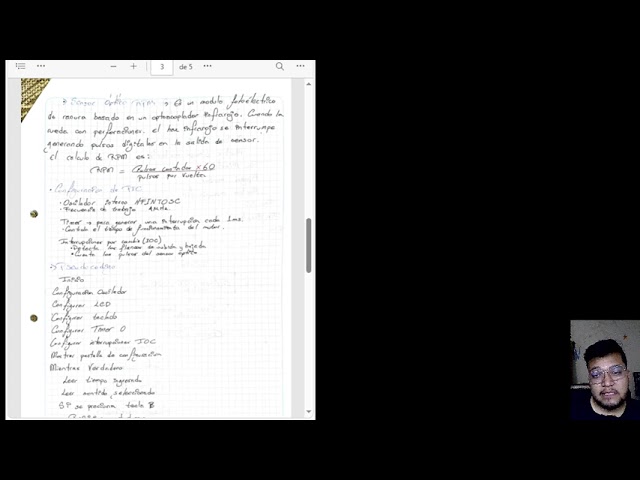 3 de 5
* Sensor Óptico RPM → Es un modulo fotoeléctrico
de ranura basado en un optoacoplador infrarojo. Cuando la
rueda con perforaciones. el haz infrarojo se interrumpe
generando pulsos digitales en la salida de sensor.
El calculo de RPM es:
RPM = Pulsos contados × 60
pulsos por vuelta
• Configuración de PIC
• Oscilador Interno HFINTOSC
• Frecuencia de trabajo
Timer → para generar una interrupción cada 1ms.
• Controla el tiempo de funcionamiento del motor.
Interrupciones por cambio (IOC)
• Detecta los flancos de subida y bajada
• Cuenta los pulsos del sensor óptico
Pseudocodigo
Inicio
Configuración Oscilador
Configurar LCD
Configurar teclado
Configurar Timer 0
Configurar interrupciones IOC
Mostrar pantalla de configuración
Mientras Verdadero
Leer tiempo ingresado
Leer sentido seleccionado
Si se presiona tecla B